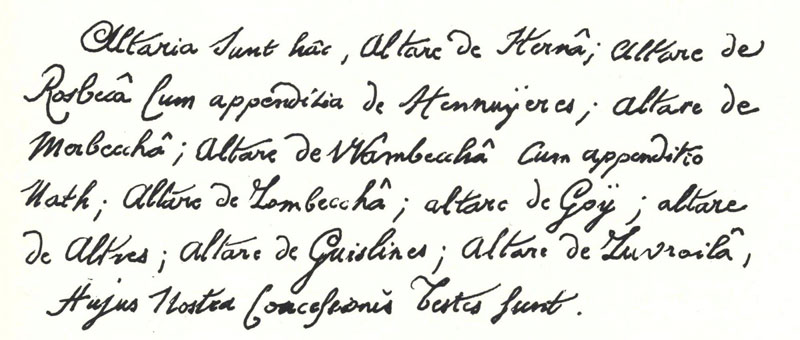 Altaria Sunt hâc, Altare de Hernâ; altare de
Rosbecâ Cum appenditia de Hennuÿeres; altare de
Morbecchâ; Altare de Wambecchâ Cum appenditio
Nath; Altare de Lombecchâ; altare de Goÿ; altare
de Altres; Altare de Guislines; Altare de Luvroilâ,
Hujus Nostra Concesionis testes Sunt.